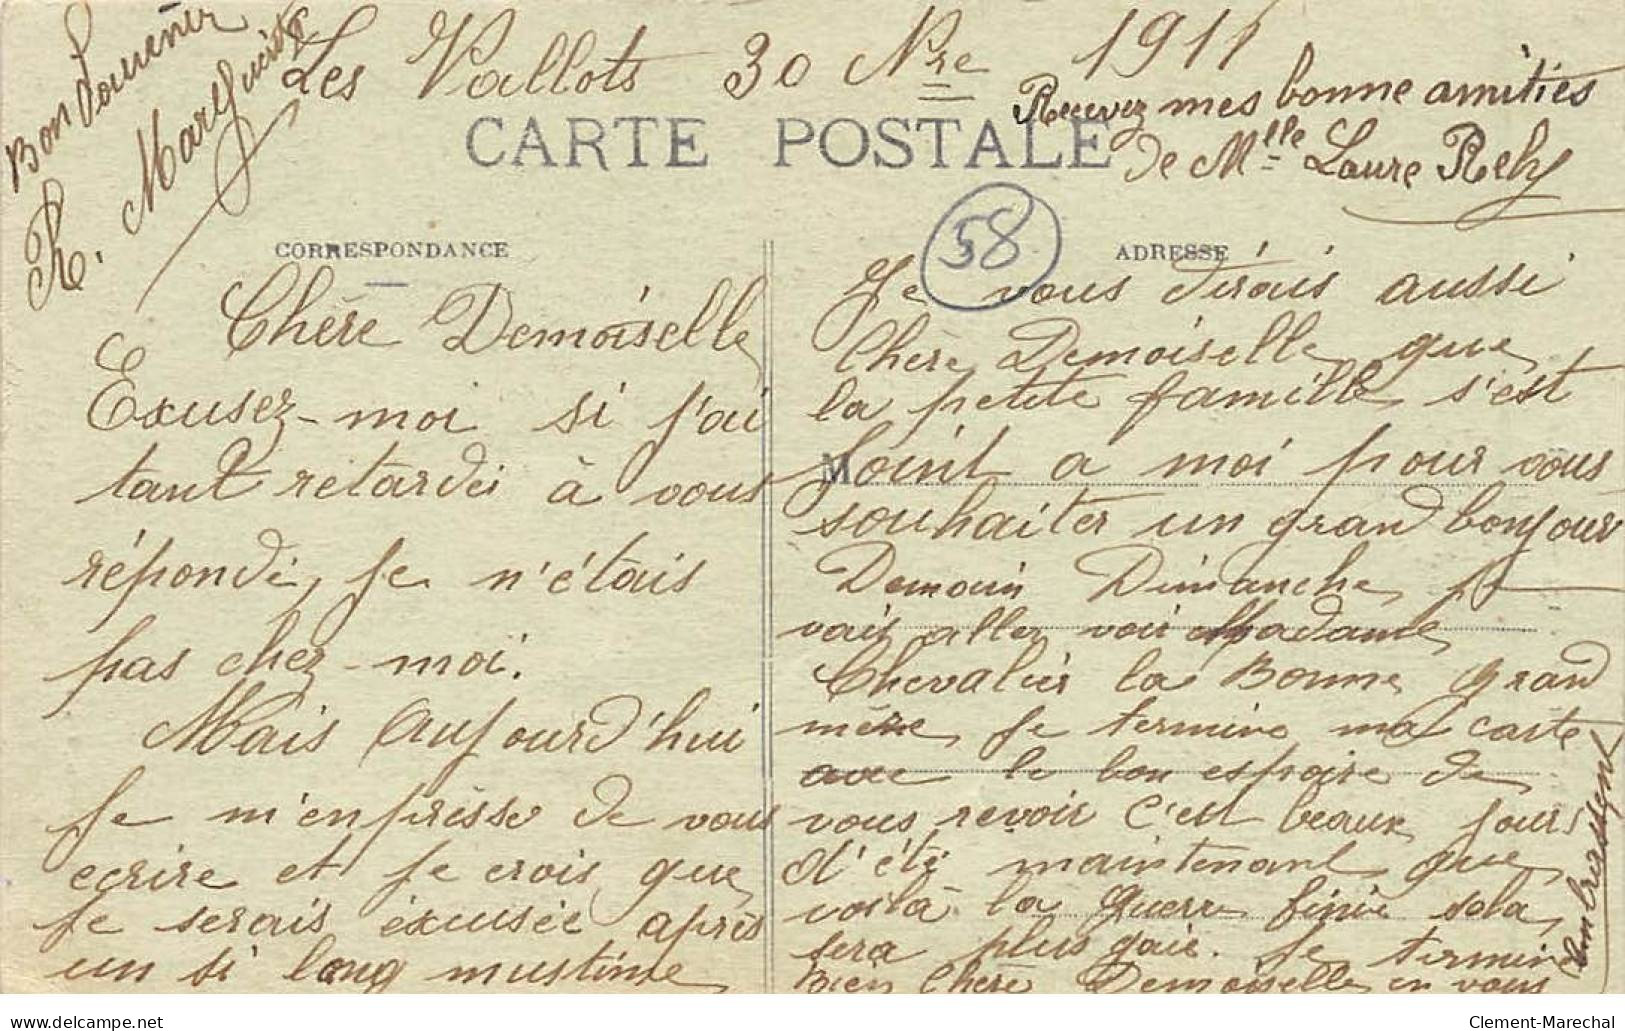 Les Vallots 30 Nbre 1911
Bon Souvenir
R. Marguerite
Recevez mes bonne amitiés
de Mlle Laure Rely
CARTE POSTALE
58
CORRESPONDANCE
ADRESSE
Chère Demoiselle
Exusez-moi si j'ai
tant retardéi à vous
répondi, je n'étais
pas chez-moi.
Mais aujourd'hui
je m'enprèsse de vous
ecrire et je crois que
je serais éxusée après
un si long mustime
Je vous dirais aussi
Chère Demoiselle que
la petite famille s'est
M
joint a moi pour vous
souhaiter un grand bonjour
Demain Dimanche je
vais aller voir Madame
Chevalier la Bonne grand
mère, je termine ma carte
avec le bon espoire de
vous revoir c'est beaux jours
d'été maintenant que
voilà la guerre finie sola
sera plus gaie. Je termin
bien Chère Demoiselle en vous
embressent
delcampe.net
Clement-Marechal